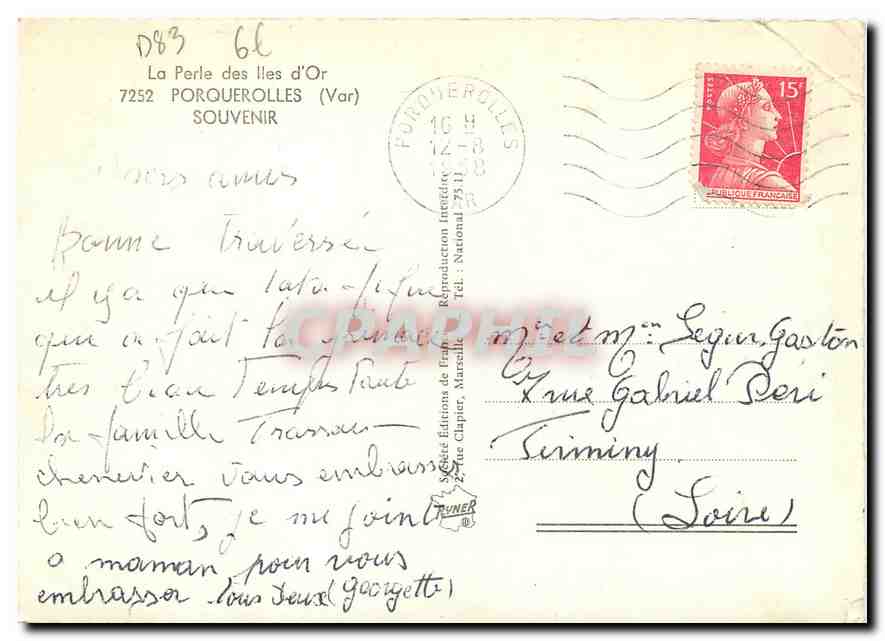 D83 6l
La Perle des Iles d'Or
7252 PORQUEROLLES (Var)
SOUVENIR
PORQUEROLLES
16 H
12-8
1958
VAR
POSTES
15F
REPUBLIQUE FRANCAISE
amis
Bonne Traversée
il y a que tata
que a fait la
tres beau Temps Toute
la famille
vous embrasse
bien fort, je me joint
a maman pour vous
embrasser Tous Deux (Georgette)
Société Éditions de France Reproduction Interdite
2, rue Clapier, Marseille Tél. : National 75.11
RYNER
CPAPHIL
Mr et Men Legur Gaston
7 rue Gabriel Peri
Firminy
(Loire)